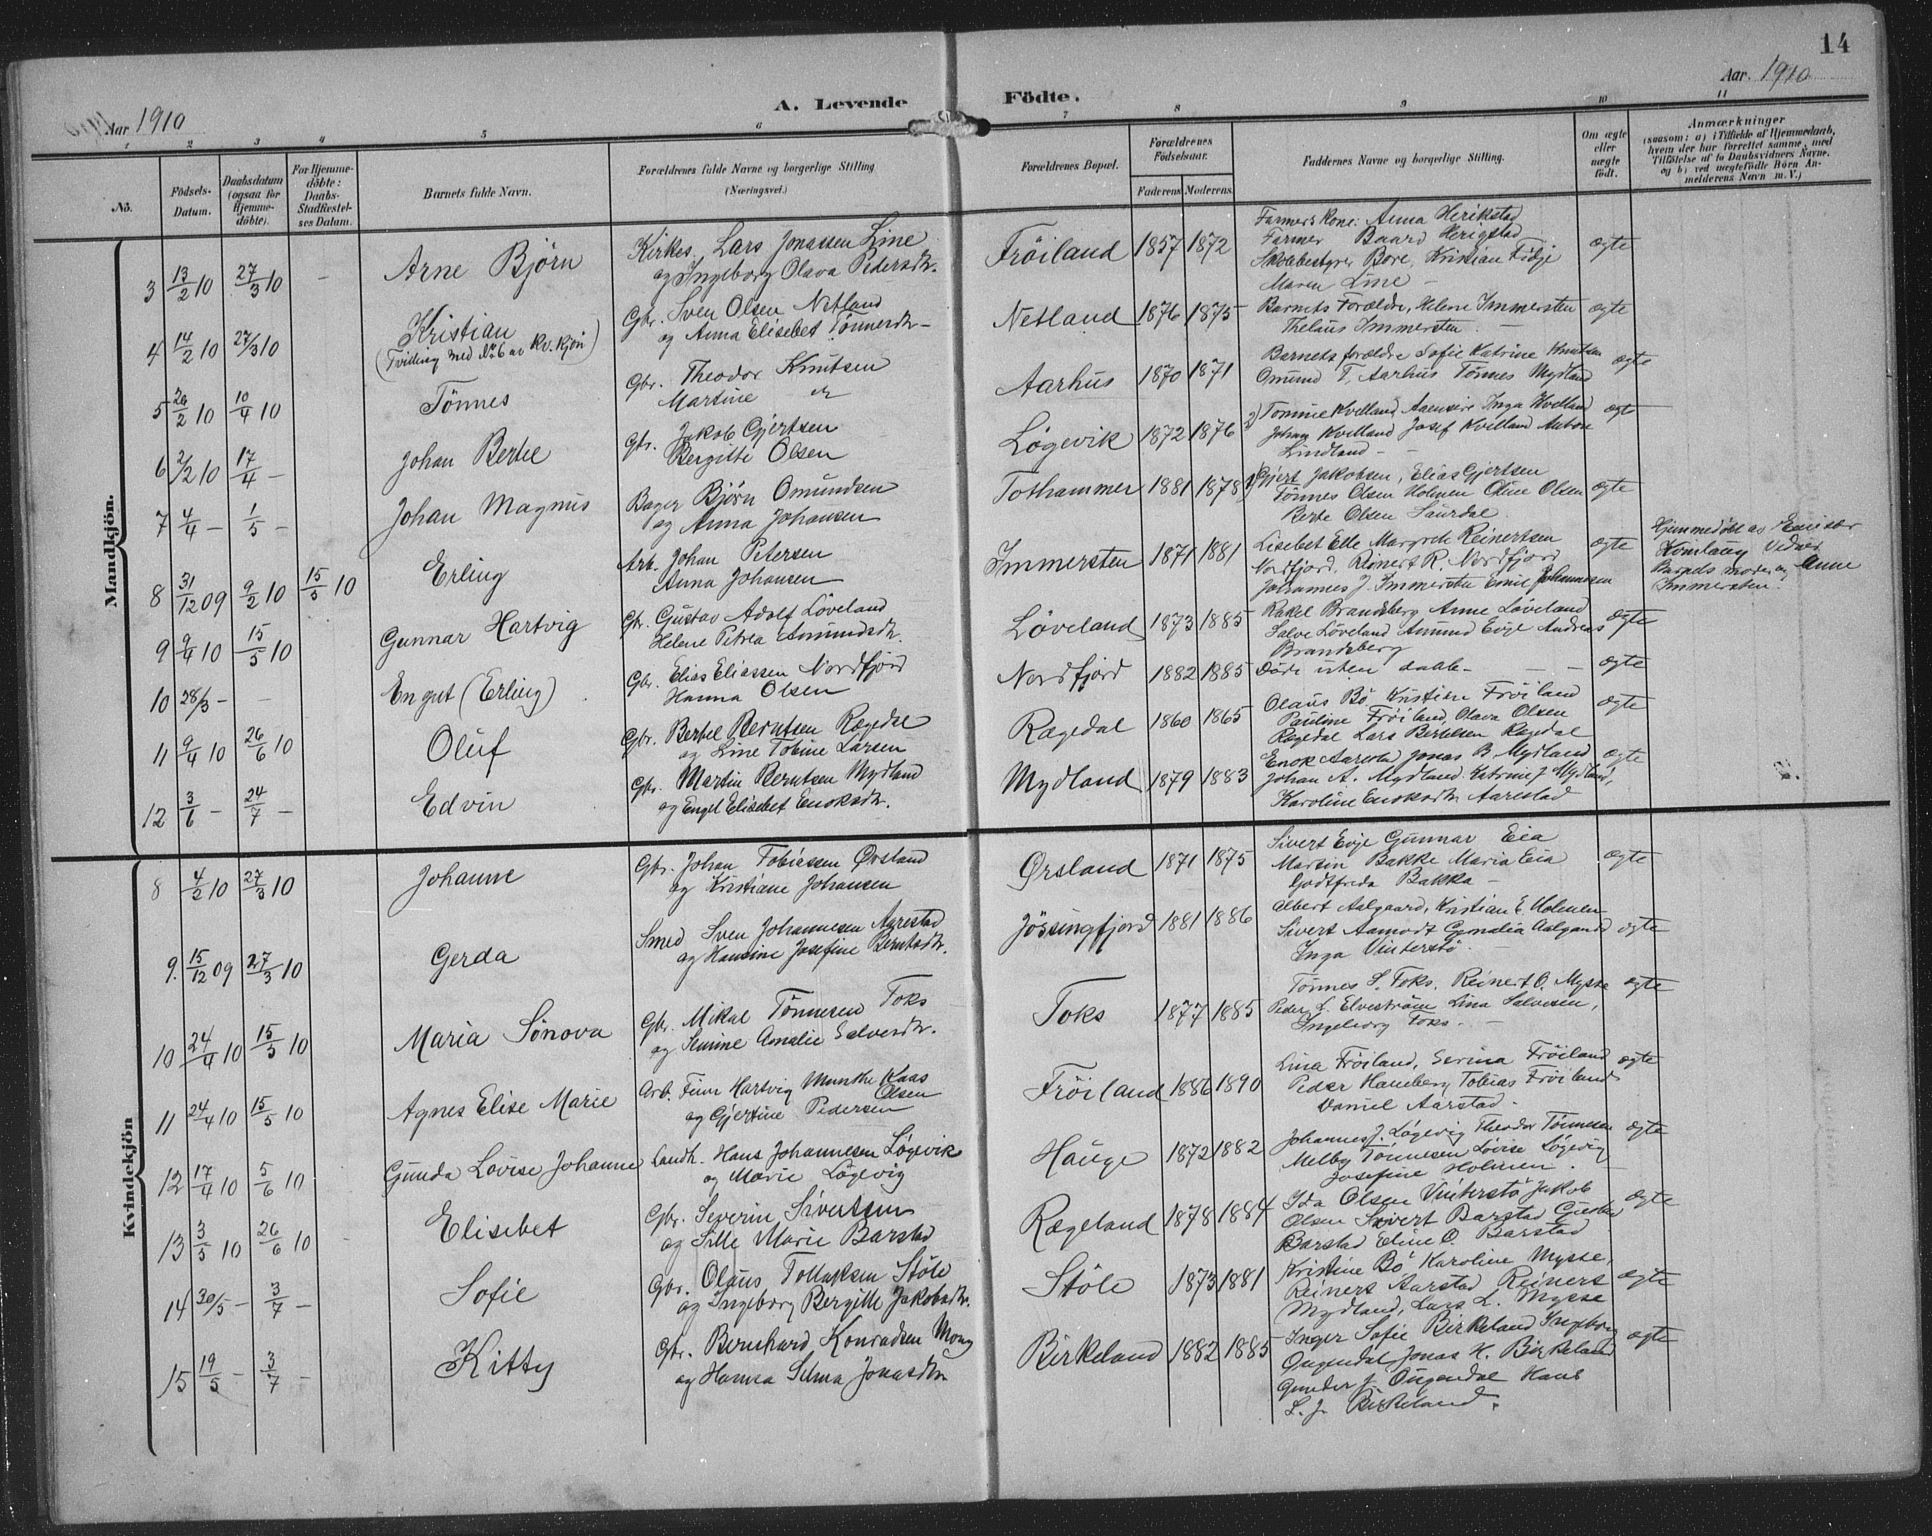 14
Aar 1910
A. Levende Födte.
Aar. 1910
1 2 3 4 5 6 7 8 9 10 11
No.
Födsels-
Datum.
Daabsdatum
(ogsaa for
Hjemme-
döbte).
For Hjemme-
döbte:
Daabs-
Stadfæstel-
ses Datum.
Barnets fulde Navn.
Forældrenes fulde Navne og borgerlige Stilling
(Næringsvei.)
Forældrenes Bopæl.
Forældrenes
Födselsaar.
Faderens Moderens.
Faddernes Navne og borgerlige Stilling.
Om ægte
eller
uægte
födt.
Anmærkninger
(saasom: a) i Tilfælde af Hjemmedaab,
hvem der har forrettet samme, med
Tilföielse af to Daabsvidners Navne.
og b) ved uægtefödte Börn An-
melderens Navn m. V.)
Mandkjön.
3 13/2 10 27/3 10 – Arne Björn
Kirkes. Lars Jonassen Line
og Ingeborg Olava Pedersdtr.
Fröiland 1857 1872
Farmers Kone: Anna Herikstad
Farmer Baard Herigstad
Skolebestyrer Bore, Kristian Födje
Maren Line –
ægte
4 14/2 10 27/3 10 Kristian
(Tvilling med No 6 av Kv. kjön)
Gbr. Sven Olsen Netland
og Anna Elisebet Tönnesdtr –
Netland 1876 1875
Barnets Forældre, Helene Immersten
Thelaus Immersten –
ægte
5 26/2 10 10/4 10 Tönnes
Gbr. Theodor Knutsen
Martine
Aarhus 1870 1871
Barnets forældre Sofie Katrine Knutsen
Omund T. Aarhus Tönnes Mydland
ægte
6 2/2 10 17/4 – Johan Bertel
Gbr. Jakob Gjertsen
Bergitte Olsen
Lögevik 1872 1876
2) Tomine Kvelland Inga Kvelland
Johan Kvelland Josef Kvelland Anton
Lindland –
ægt
7 4/4 – 1/5 – Johan Magnus
Bager Björn Omundsen
og Anna Johansen
Tothammer 1881 1878
1) Gjert Jakobsen, Elias Gjertsen
Tönnes Olsen Holmen Oline Olsen
Berte Olsen Saurdal.
ægte
8 31/12 09 9/2 10 15/5 10 Erling
Arb. Johan Petersen
Anna Johansen
Immersten 1871 1881
Lisebet Elle Margrete Reinertsen
Nordfjord, Reinert R. Nordfjord
Johannes J. Immersten Emil Johannesen
ægte
Hjemmedöbt av
Vidner
Barnets moder og Anne
Immersten
9 9/4 10 15/5 10 Gunnar Hartvig
Gbr. Gustav Adolf Löveland
Helene Petrea Amundsdtr.
Löveland 1873 1885
Rakel Brandsberg Anne Löveland
Salve Löveland Amund Eije Andreas
Brandsberg
ægte
10 28/3 – – En gut (Erling)
Gbr. Elias Eliassen Nordfjord
Hanna Olsen
Nordfjord 1882 1885 Döde uten daab – – –
ægte
11 9/4 10 26/6 10 Oluf
Gbr. Bertel Berntsen Rægdal
og Line Tobine Larsen
Rægedal 1860 1865
Olaus Bö Kristine Fröiland
Pauline Fröiland, Olava Olsen
Rægedal Lars Bertelsen Rægedal
ægte
12 3/6 – 24/7 – Edvin
Gbr. Martin Berntsen Mydland
og Engel Elisebet Enoksdtr.
Mydland 1879 1883
Enok Aarestad Jonas B. Mydland
Johan A. Mydland Katrine J Mydland,
Karoline Enoksdtr Aarestad
ægte
Kvindekjön
8 4/2 10 27/3 10 Johanne
Gbr. Johan Tobiassen Örsland
og Kristiane Johansen
Ørsland 1871 1875
Sivert Eije Gunnar Eia
Martin Bakke Maria Eia
Godtfreda Bakka –
ægte
9. 15/12 09 27/3 10 Gerda
Smed Sven Johannesen Aarestad
og Hansine Josefine Berntsdtr.
Jössingfjord 1881 1886
Albert Aalgaard, Kristian E Holmen
Sivert Aamodt Cornelia Aalgaard
Inga Vinterstö –
ægte
10 24/4 10 15/5 10 Maria Sönova
Gbr. Mikal Tönnesen Toks
og Amalie Salvesdtr.
Toks 1877 1885
Tönnes S. Toks. Reinert O. Mysse
Peder L. Elveström Lina Salvesen,
Ingeborg Toks. –
ægte
11 24/4 10 15/5 10 Agnes Elise Marie
Arb. Finn Hartvig Munthe Kaas
Olsen
og Gjertine Pedersen
Fröiland 1886 1890
Lina Fröiland, Serina Fröiland
Peder Haneberg Tobias Fröiland
Daniel Aarstad.
ægte
12 17/4 10 5/6 10 Gunda Lovise Johanne
Landh. Hans Johannesen Lögevik
og Marie Lögevig
Hauge 1872 1882
Johannes J. Lögevig Theodor Tönnesen
Melby Tönnesen Lovise Lögevig
Josefine Holmen.
ægte
13 3/5 10 26/6 10 Elisebet
Gbr. Severin Sivertsen
og Sille Marie Barstad
Rægeland 1878 1884
Ida Olsen Vinterstö Jakob
Olsen Sivert Barstad Gustav
Barstad Eline O. Barstad
ægte
14 30/5 – 3/7 – Sofie
Gbr. Olaus Tollaksen Stöle
og Ingeborg Bergitte Jakobsdtr.
Stöle 1873 1881
Kristine Bö Karoline Mysse,
Reiners Aarstad Reiners
Mydland, Lars L. Mysse
ægte
15 19/5 – 3/7 – Kitty
Gbr. Bernhard Konradsen Mong
og Hanna Selma Jonasdtr
Birkeland 1882 1885
Inger Sofie Birkeland Ingeborg
Ougendal Jonas K. Birkeland
Gunder J. Ougendal Hans
L. J. Birkeland.
ægte